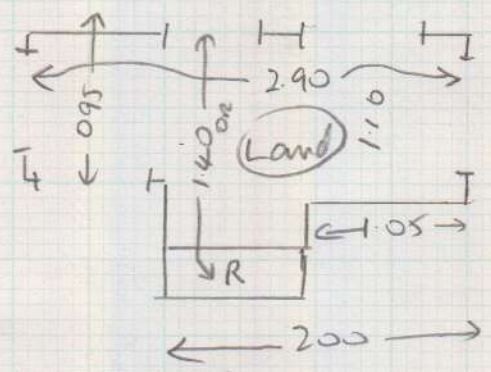 2.90
095
1.40
Land
1.10
1.05
R
200